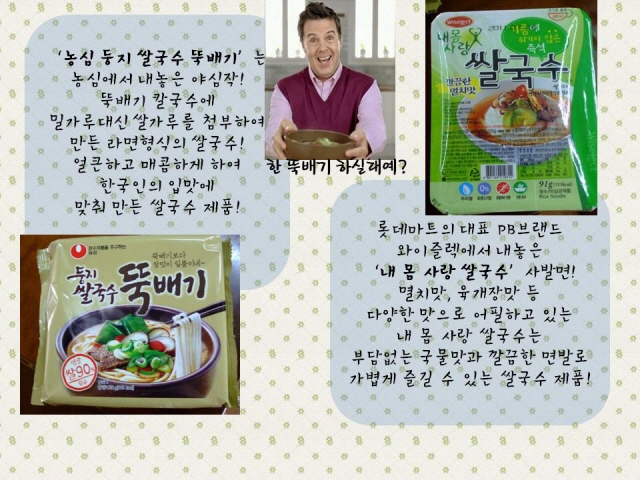 '농심 둥지 쌀국수 뚝배기' 는
농심에서 내놓은 야심작!
뚝배기 칼국수에
밀가루대신 쌀가루를 첨부하여
만든 라면형식의 쌀국수!
얼큰하고 매콤하게 하여
한국인의 입맛에
맞춰 만든 쌀국수 제품!
한 뚝배기 하실래예?
wiselect
내 몸
사랑
기름에
튀기지 않은
즉석
쌀국수
깔끔한
멸치맛
91g
롯데마트의 대표 PB브랜드
와이즐렉에서 내놓은
'내 몸 사랑 쌀국수' 사발면!
멸치맛, 육개장맛 등
다양한 맛으로 어필하고 있는
내 몸 사랑 쌀국수는
부담없는 국물맛과 깔끔한 면발로
가볍게 즐길 수 있는 쌀국수 제품!
농심
뚝배기보다
장맛이 일품이네~
둥지
쌀국수
뚝배기
쌀90%